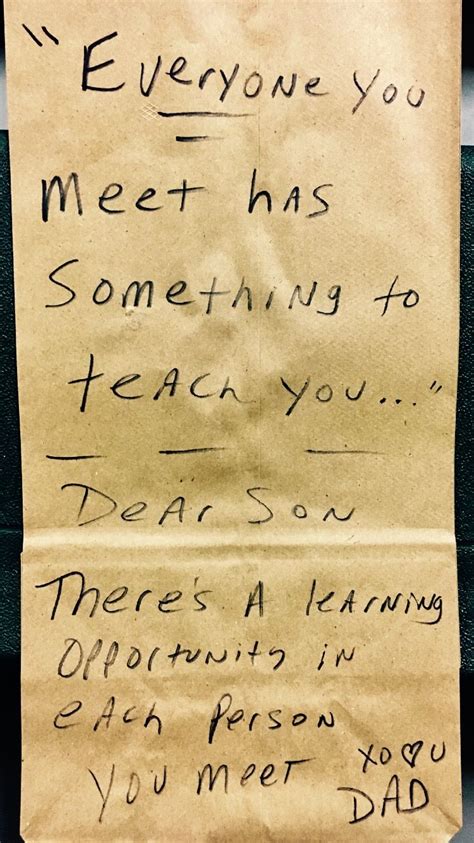 "Everyone you
meet has
something to
teach you..."
Dear Son
There's a learning
opportunity in
each person
you meet
XO♥U
DAD